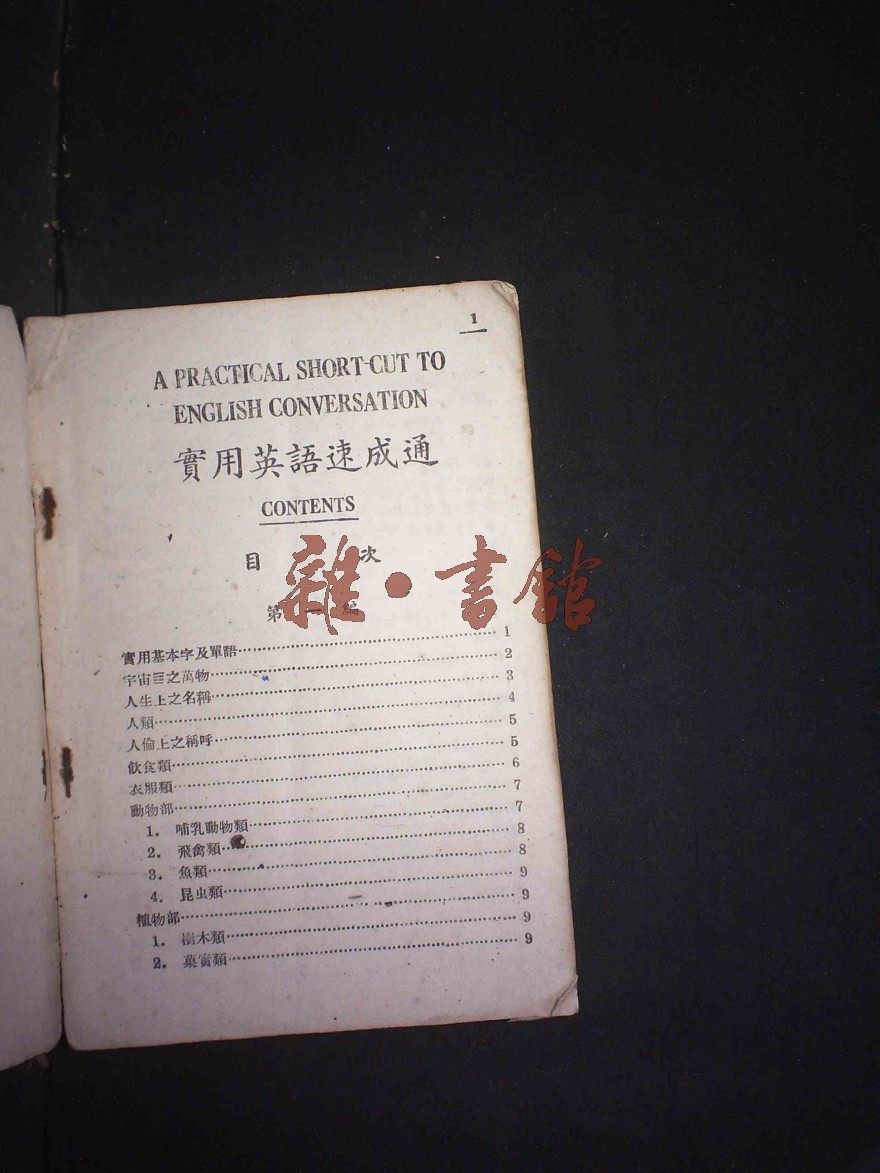 1
A PRACTICAL SHORT-CUT TO
ENGLISH CONVERSATION
實用英語速成通
CONTENTS
目 次
雜·書館
第一編
實用基本字及單語 1
宇宙 之萬物 2
人生上之名稱 3
人類 4
人倫上之稱呼 5
飲食類 5
衣服類 6
動物部 7
1. 哺乳動物類 7
2. 飛禽類 8
3. 魚類 8
4. 昆虫類 9
植物部 9
1. 樹木類 9
2. 菓實類 9